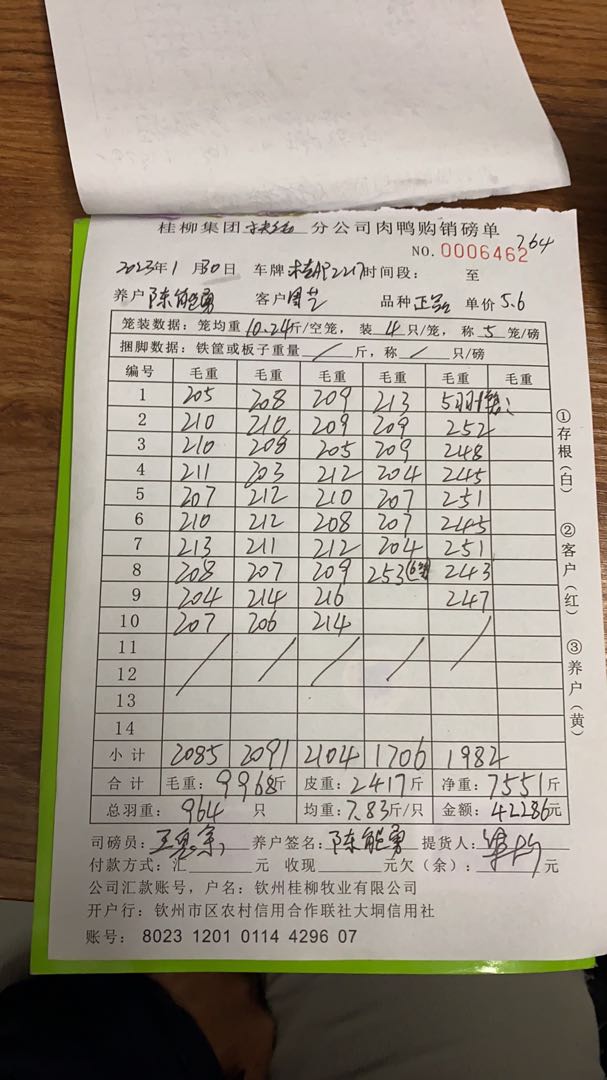 桂柳集团 分公司肉鸭购销磅单
NO. 0006462 764
2023年1月30日 车牌 桂AP2217 时间段： 至
养户 陈能勇 客户 周艺 品种 单价 5.6
笼装数据：笼均重 10.24 斤/空笼，装 4 只/笼，称 5 笼/磅
捆脚数据：铁筐或板子重量 / 斤，称 / 只/磅
编号 毛重 毛重 毛重 毛重 毛重 毛重
1 205 208 209 213 5羽1笼：
2 210 210 209 209 252
3 210 208 205 209 248
4 211 203 212 204 245
5 207 212 210 207 251
6 210 212 208 207 245
7 213 211 212 204 251
8 208 207 209 253(6笼) 243
9 204 214 216 247
10 207 206 214
11
12
13
14
小计 2085 2091 2104 1706 1982
合计 毛重：9968斤 皮重：2417斤 净重：7551斤
总羽重：964 只 均重：7.83斤/只 金额：42286元
司磅员： 养户签名：陈能勇 提货人：
付款方式：汇 元 收现 元欠（余）： 元
公司汇款账号，户名：钦州桂柳牧业有限公司
开户行：钦州市区农村信用合作联社大垌信用社
账号： 8023 1201 0114 4296 07
①存根（白）
②客户（红）
③养户（黄）